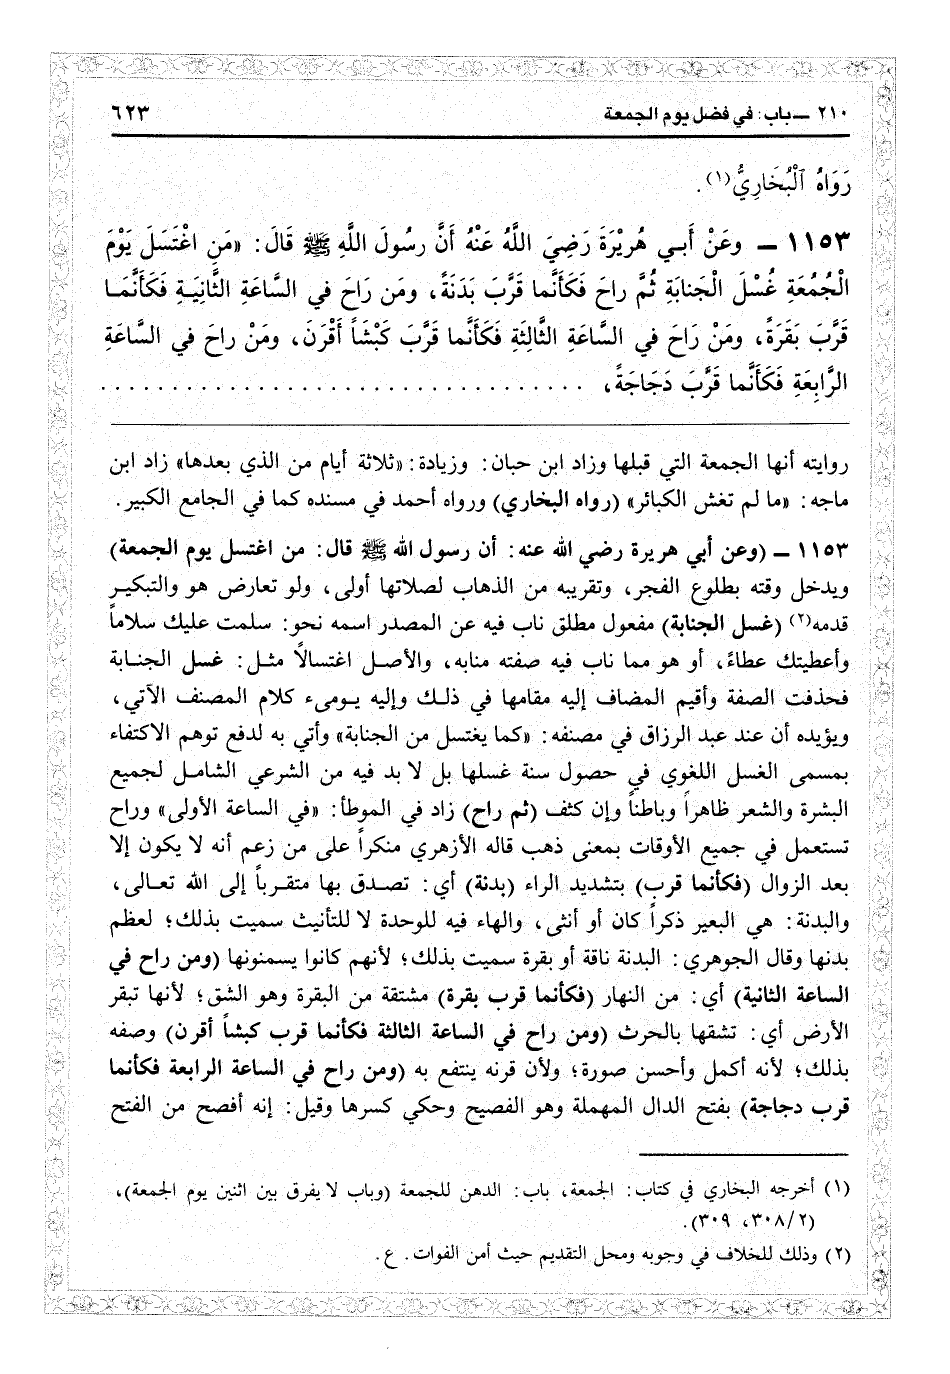 ٢١٠ ــ باب: في فضل يوم الجمعة ٦٢٣
رَوَاهُ الْبُخَارِيُّ(١).
١١٥٣ ــ وعَنْ أَبـي هُرِيْرَةَ رَضِيَ اللَّهُ عَنْهُ أَنَّ رسُولَ اللَّهِ ﷺ قَالَ: «مَنِ اغْتَسَلَ يَوْمَ
الْجُمُعَةِ غُسْلَ الْجَنابَةِ ثُمَّ راحَ فَكَأَنَّما قَرَّبَ بَدَنَةً، ومَن رَاحَ في السَّاعَةِ الثَّانِيَـةِ فَكَأَنَّمَـا
قَرَّبَ بَقَرَةً، ومَنْ رَاحَ في السَّاعَةِ الثَّالِثَةِ فَكَأَنَّما قَرَّبَ كَبْشَاً أَقْرَنَ، ومَنْ راحَ في السَّاعَةِ
الرَّابِعَةِ فَكَأَنَّما قَرَّبَ دَجَاجَةً، . . . . . . . . . . . . . . . . . . . . . . . . . . . . . . . . .
روايته أنها الجمعة التي قبلها وزاد ابن حبان: وزيادة: «ثلاثة أيام من الذي بعدها» زاد ابن
ماجه: «ما لم تغش الكبائر» (رواه البخاري) ورواه أحمد في مسنده كما في الجامع الكبير.
١١٥٣ ــ (وعن أبي هريرة رضي الله عنه: أن رسول الله ﷺ قال: من اغتسل يوم الجمعة)
ويدخل وقته بطلوع الفجر، وتقريبه من الذهاب لصلاتها أولى، ولو تعارض هو والتبكيـر
قدمه(٢) (غسل الجنابة) مفعول مطلق ناب فيه عن المصدر اسمه نحو: سلمت عليك سلاماً
وأعطيتك عطاءً، أو هو مما ناب فيه صفته منابه، والأصل اغتسالًا مثـل: غسل الجنـابة
فحذفت الصفة وأقيم المضاف إليه مقامها في ذلـك وإليه يـومىء كلام المصنف الآتي،
ويؤيده أن عند عبد الرزاق في مصنفه: «كما يغتسل من الجنابة» وأتي به لدفع توهم الاكتفاء
بمسمى الغسل اللغوي في حصول سنة غسلها بل لا بد فيه من الشرعي الشامـل لجميع
البشرة والشعر ظاهراً وباطناً وإن كثف (ثم راح) زاد في الموطأ: «في الساعة الأولى» وراح
تستعمل في جميع الأوقات بمعنى ذهب قاله الأزهري منكراً على من زعم أنه لا يكون إلا
بعد الزوال (فكأنما قرب) بتشديد الراء (بدنة) أي: تصـدق بها متقـرباً إلى الله تعـالى،
والبدنة: هي البعير ذكراً كان أو أنثى، والهاء فيه للوحدة لا للتأنيث سميت بذلك؛ لعظم
بدنها وقال الجوهري: البدنة ناقة أو بقرة سميت بذلك؛ لأنهم كانوا يسمنونها (ومن راح في
الساعة الثانية) أي: من النهار (فكأنما قرب بقرة) مشتقة من البقرة وهو الشق؛ لأنها تبقر
الأرض أي: تشقها بالحرث (ومن راح في الساعة الثالثة فكأنما قرب كبشاً أقرن) وصفه
بذلك؛ لأنه أكمل وأحسن صورة؛ ولأن قرنه ينتفع به (ومن راح في الساعة الرابعة فكأنما
قرب دجاجة) بفتح الدال المهملة وهو الفصيح وحكي كسرها وقيل: إنه أفصح من الفتح
(١) أخرجه البخاري في كتاب: الجمعة، باب: الدهن للجمعة (وباب لا يفرق بين اثنين يوم الجمعة)،
(٢/ ٣٠٨، ٣٠٩).
(٢) وذلك للخلاف في وجوبه ومحل التقديم حيث أمن الفوات. ع.